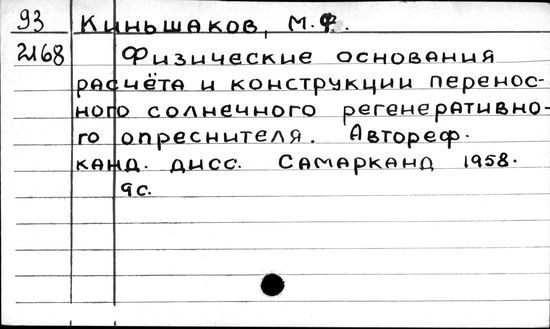 93 Киньшаков, М.Ф.
2168 Физические основания
расчёта и конструкции перенос-
ного солнечного регенеративно-
го опреснителя. Автореф.
канд. дисс. Самарканд 1958.
9с.